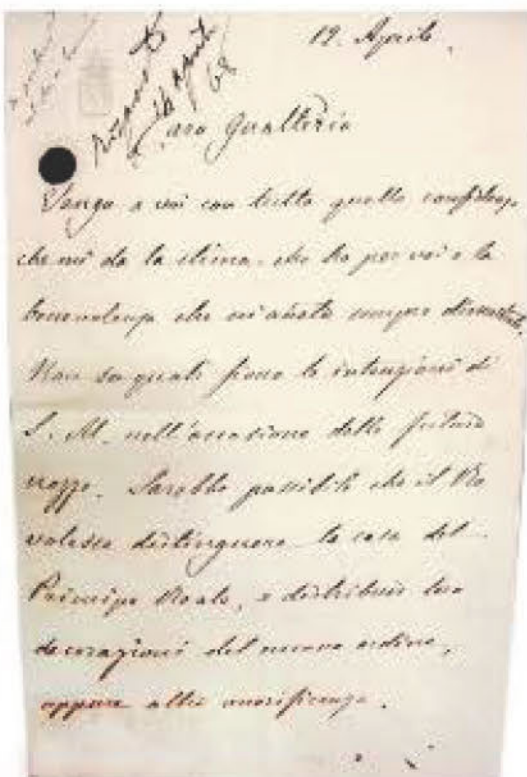 19. Aprile.
risposto
agosto
68
Caro Gualterio
Vengo a voi con tutta quella confidenza
che mi da la stima che ho per voi e la
benevolenza che mi avete sempre dimostrata.
Non so quali sieno le intenzioni di
S. M. nell'occasione delle future
nozze. Sarebbe possibile che il Re
volesse distinguere la casa del
Principe Reale, e distribuire
decorazioni del nuovo ordine,
oppure altre onorificenze.